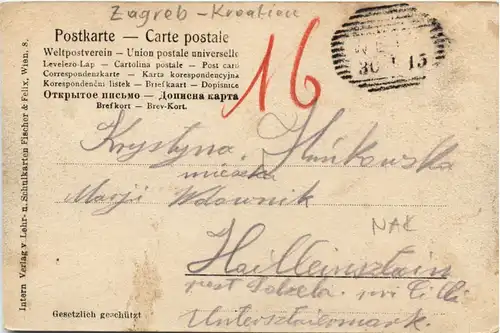 Zagreb - Kroatien
Postkarte — Carte postale
Weltpostverein – Union postale universelle
Levelezo-Lap — Cartolina postale — Post card
Correspondenzkarte – Karta korespondencyjna
Korespondenční lístek – Briefkaart – Dopisnice
Открытое письмо — Дописна карта
Brefkort – Brev-Kort.
16
30 15
Krystyna
mieszka
Marji Wdownik
NAE
Heilleinsztain
post pri Cilli
Untersteiermark
Gesetzlich geschützt
Intern Verlag v Lehr- u. Schulkarten Fischer & Felix, Wien, 8.